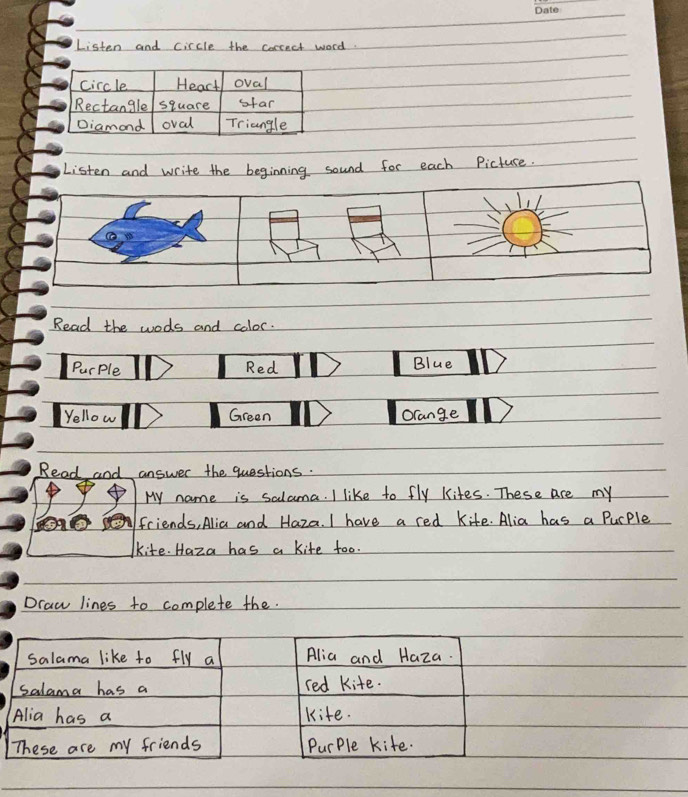 Date
Listen and circle the correct word.
Circle Heart oval
Rectangle square star
Diamond oval Triangle
Listen and write the beginning sound for each Picture.
Read the wods and color.
PurPle Red Blue
Yellow Green Orange
Read and answer the questions.
My name is salama. I like to fly kites. These are my
friends, Alia and Haza. I have a red kite. Alia has a PurPle
kite. Haza has a kite too.
Draw lines to complete the.
Salama like to fly a Alia and Haza.
Salama has a red kite.
Alia has a kite.
These are my friends PurPle kite.